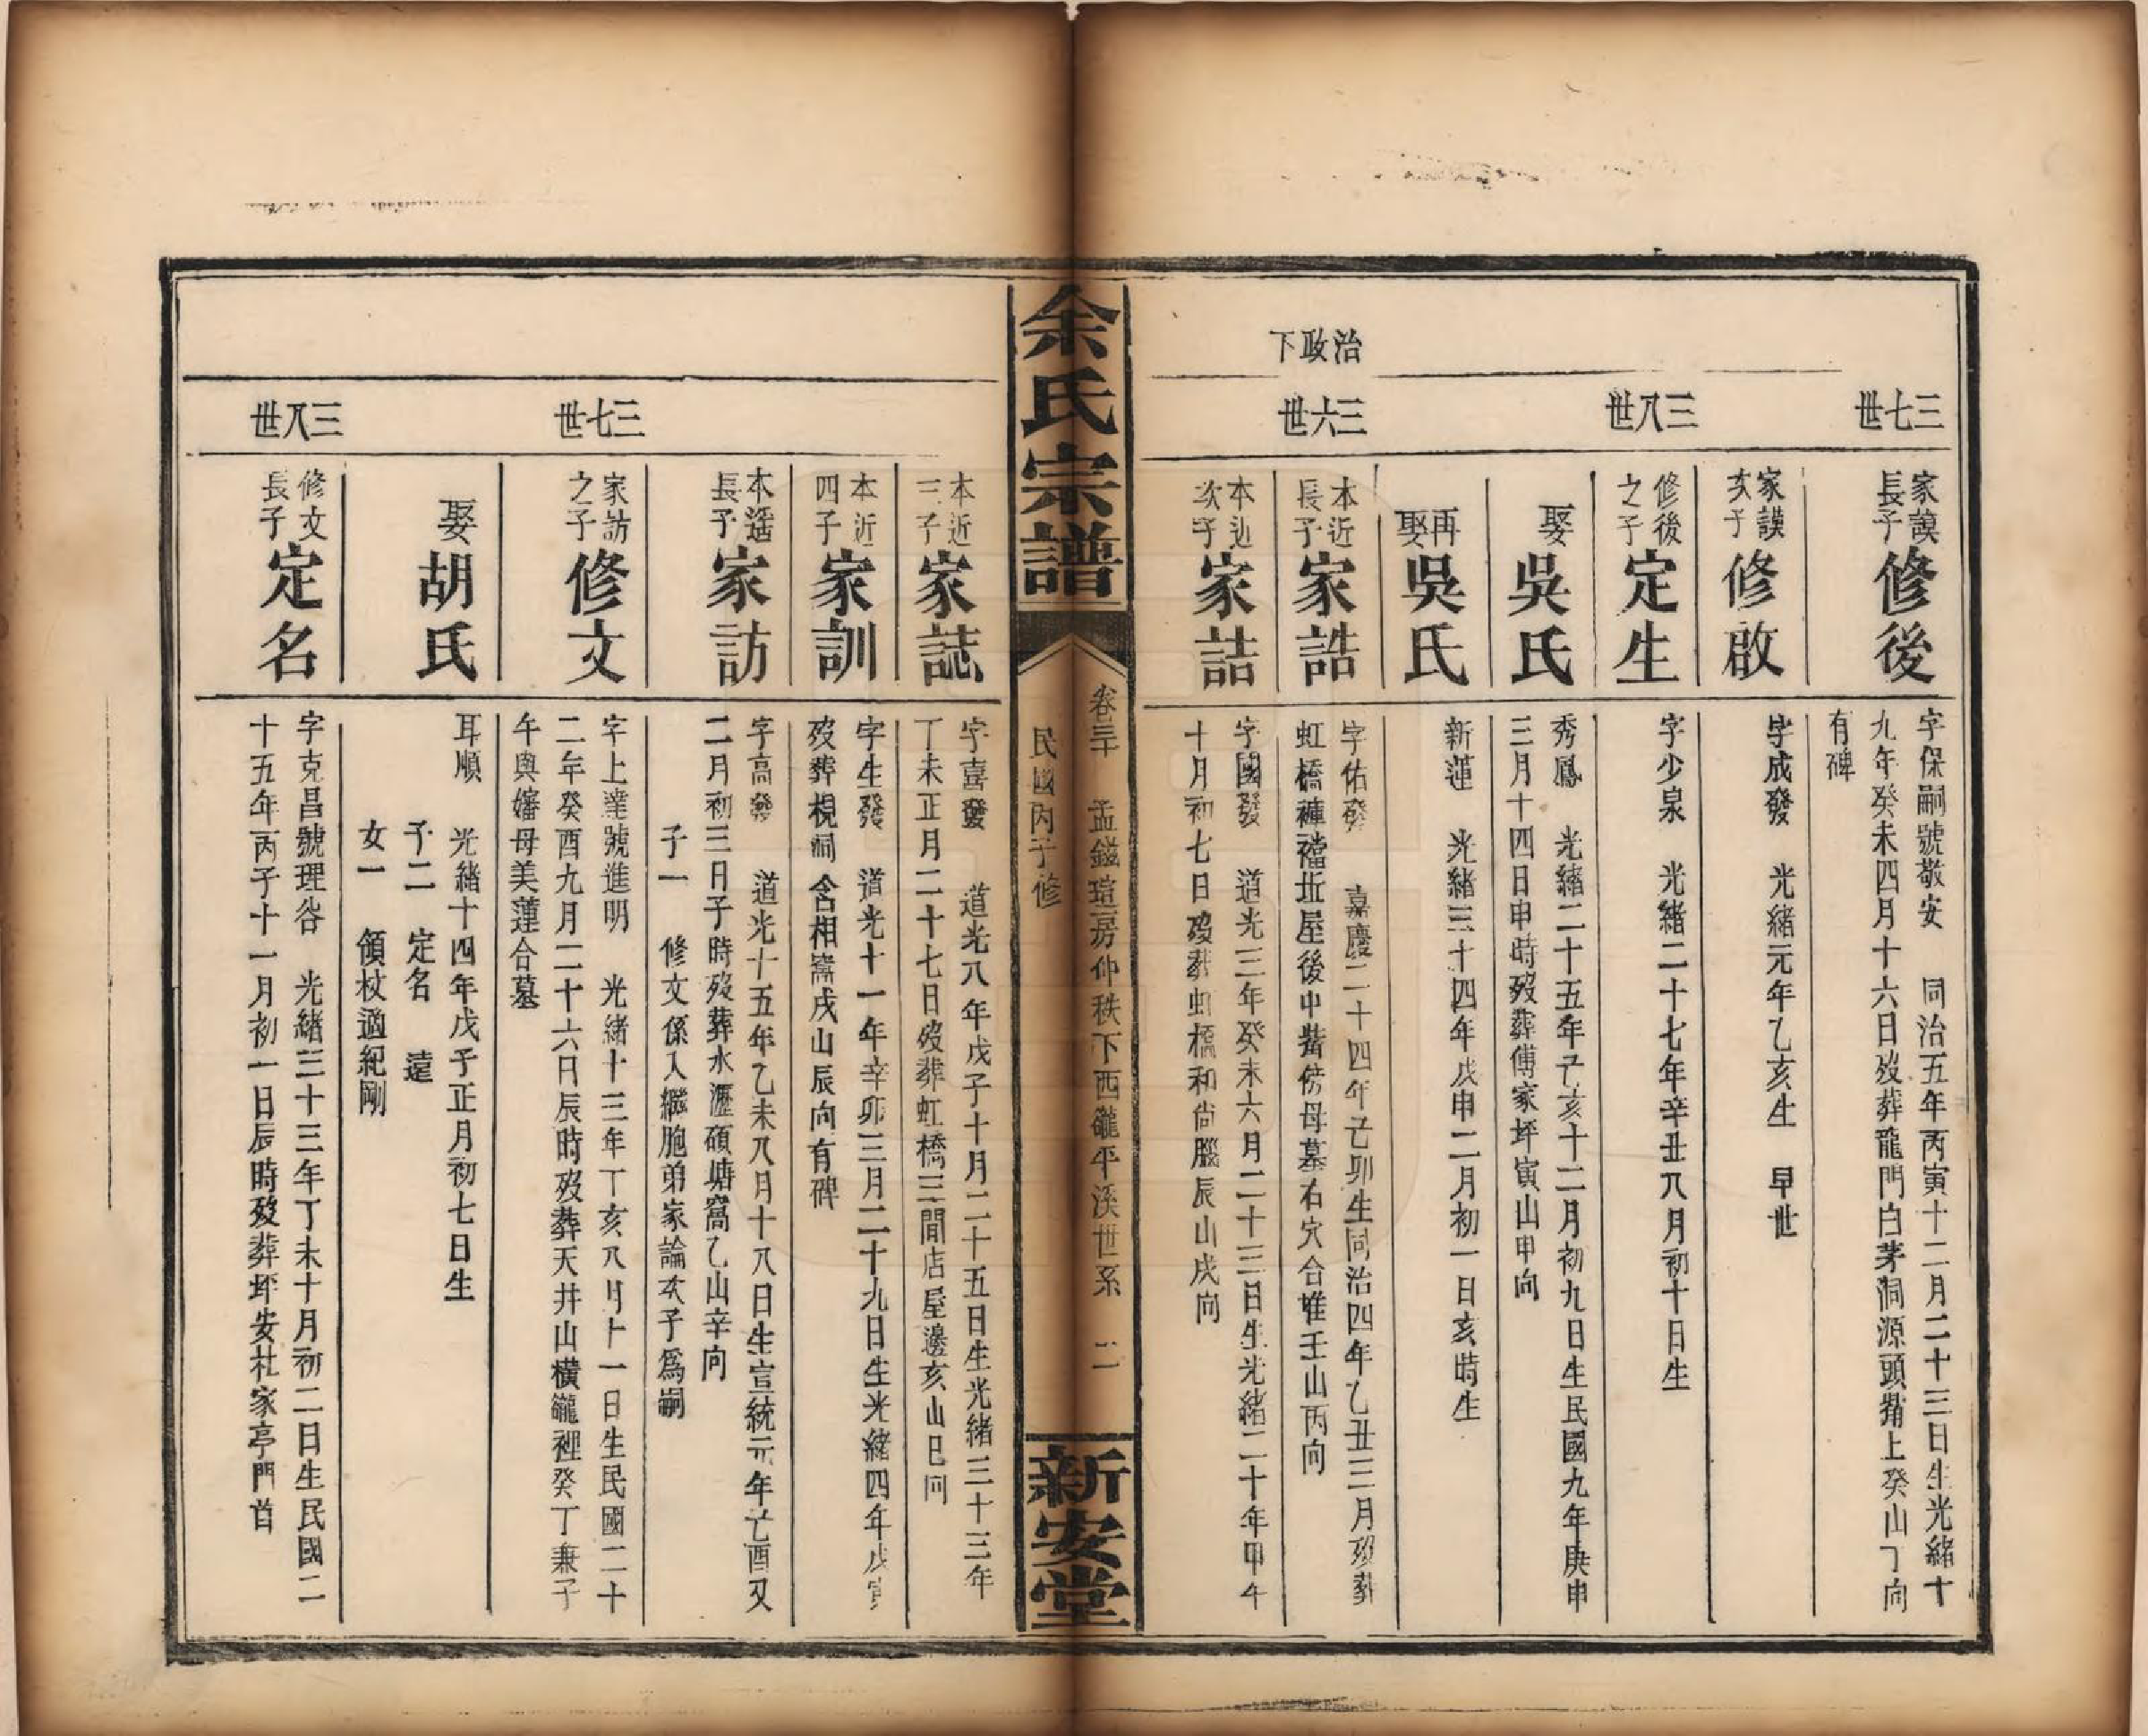 三七世
家謨長子
修後
字保嗣號敬安 同治五年丙寅十二月二十三日生光緒十
九年癸未四月十六日歿葬龍門白茅洞源頭觜上癸山丁向
有碑
家謨次子
修啟
字成發 光緒元年乙亥生 早世
三八世
修後之子
定生
字少泉 光緒二十七年辛丑八月初十日生
娶
吳氏
秀鳳 光緒二十五年己亥十二月初九日生民國九年庚申
三月十四日申時歿葬傅家坪寅山甲向
再娶
吳氏
新蓮 光緒三十四年戊申二月初一日亥時生
治政下
三六世
本近長子
家誥
字佑發 嘉慶二十四年己卯生同治四年乙丑三月歿葬
虹橋褲襠坵屋後中觜傍母墓右穴合堆壬山丙向
本近次子
家詰
字國發 道光三年癸未六月二十三日生光緒二十年甲午
十月初七日歿葬虹橋和尚腦辰山戌向
余氏宗譜
卷三十 孟錢瑄房仲秩下西礲平溪世系 二
民國丙子修
新安堂
本近三子
家誌
字喜發 道光八年戊子十月二十五日生光緒三十三年
丁未正月二十七日歿葬虹橋三間店屋邊亥山巳向
本近四子
家訓
字生發 道光十一年辛卯三月二十九日生光緒四年戊寅
歿葬梘祠含相窩戌山辰向有碑
本遙長子
家訪
字高發 道光十五年乙未八月十八日生宣統元年己酉又
二月初三日子時歿葬水瀝碩塘窩乙山辛向
子一 修文係入繼胞弟家論次子爲嗣
三七世
家訪之子
修文
字上達號進明 光緒十三年丁亥八月十一日生民國二十
二年癸酉九月二十六日辰時歿葬天井山橫礲裡癸丁兼子
午與嬸母美蓮合墓
娶
胡氏
耳順 光緒十四年戊子正月初七日生
子二 定名 遠
女一 領杖適紀剛
三八世
修文長子
定名
字克昌號理谷 光緒三十三年丁未十月初二日生民國二
十五年丙子十一月初一日辰時歿葬坪安社家亭門首